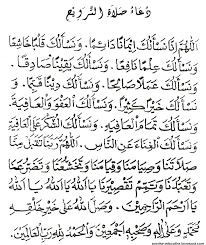 دُعَاءُ صَلَاةِ التَّرَوِيْحِ
اَللّٰهُمَّ اِنَّا نَسْأَلُكَ اِيْمَانًا دَائِمًا. وَنَسْأَلُكَ قَلْبًا خَاشِعًا
وَنَسْأَلُكَ عِلْمًا نَافِعًا. وَنَسْأَلُكَ يَقِيْنًا صَادِقًا.
وَنَسْأَلُكَ عَمَلًا صَالِحًا. وَنَسْأَلُكَ دِيْنًا قَيِّمًا.
وَنَسْأَلُكَ خَيْرًا كَثِيْرًا. وَنَسْأَلُكَ الْعَفْوَ وَالْعَافِيَةَ.
وَنَسْأَلُكَ تَمَامَ الْعَافِيَةِ. وَنَسْأَلُكَ الشُّكْرَ عَلَى الْعَافِيَةِ
وَنَسْأَلُكَ الْغِنَاءَ عَنِ النَّاسِ. اَللّٰهُمَّ رَبَّنَا تَقَبَّلْ مِنَّا
صَلَاتَنَا وَصِيَامَنَا وَقِيَامَنَا وَتَخَشُّعَنَا وَتَضَرُّعَنَا
وَتَعَبُّدَنَا وَتَمِّمْ تَقْصِيْرَنَا يَا اَللهُ يَا اَللهُ يَا اَللهُ
يَا اَرْحَمَ الرَّاحِمِيْنَ. وَصَلَّى اللهُ عَلَى خَيْرِ خَلْقِهِ
مُحَمَّدٍ وَعَلَى اٰلِهِ وَصَحْبِهِ اَجْمَعِيْنَ وَالْحَمْدُ لِلّٰهِ رَبِّ الْعَالَمِيْنَ.